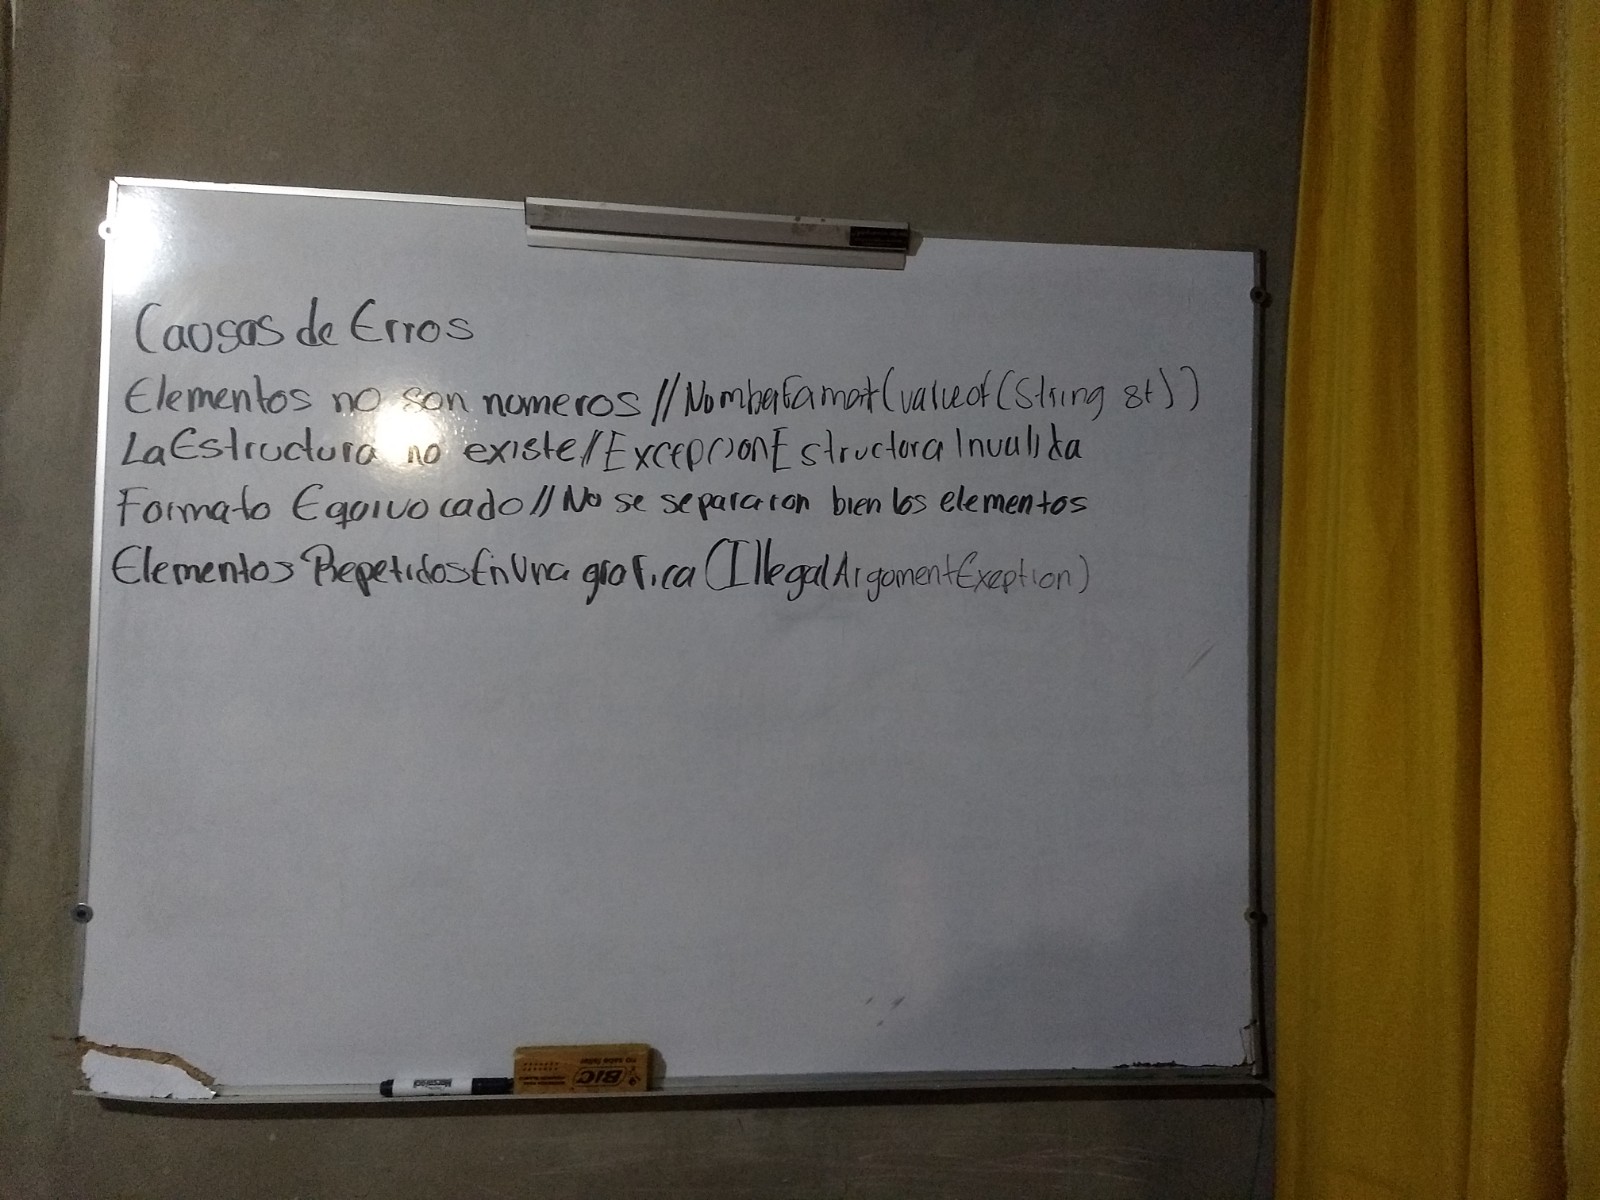 Causas de Erros
Elementos no son numeros // NumberFamat(valueof(String st))
La Estructura no existe // ExcepcionEstructuraInvalida
Formato Equivocado // No se separaron bien los elementos
Elementos Repetidos En Una grafica (IllegalArgumentExeption)
BIC